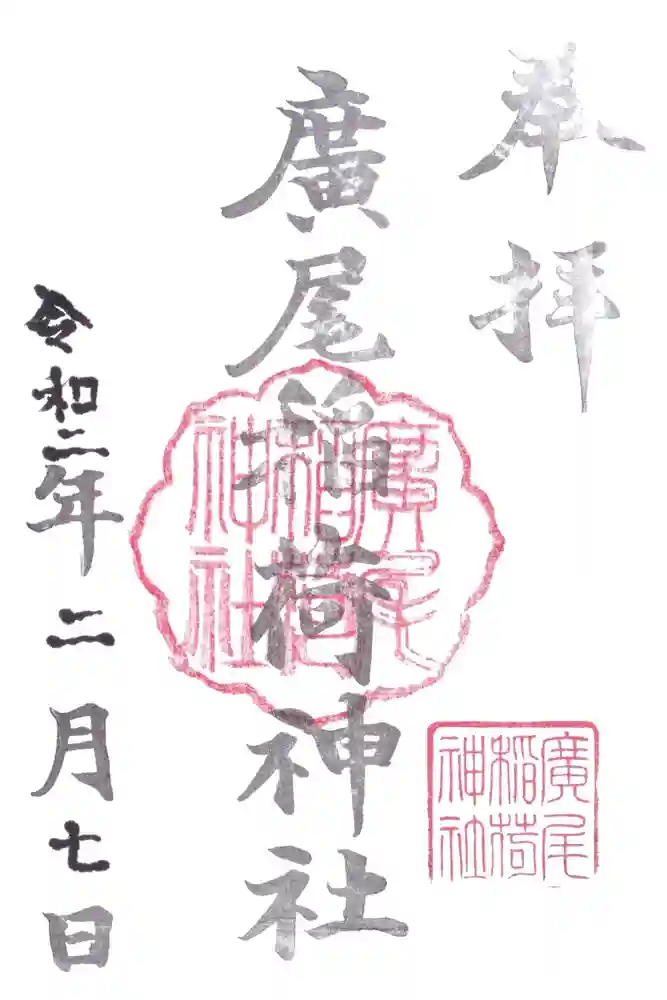 奉拝
廣尾稲荷神社
廣尾
稲荷
神社
廣尾
稲荷
神社
令和二年二月七日